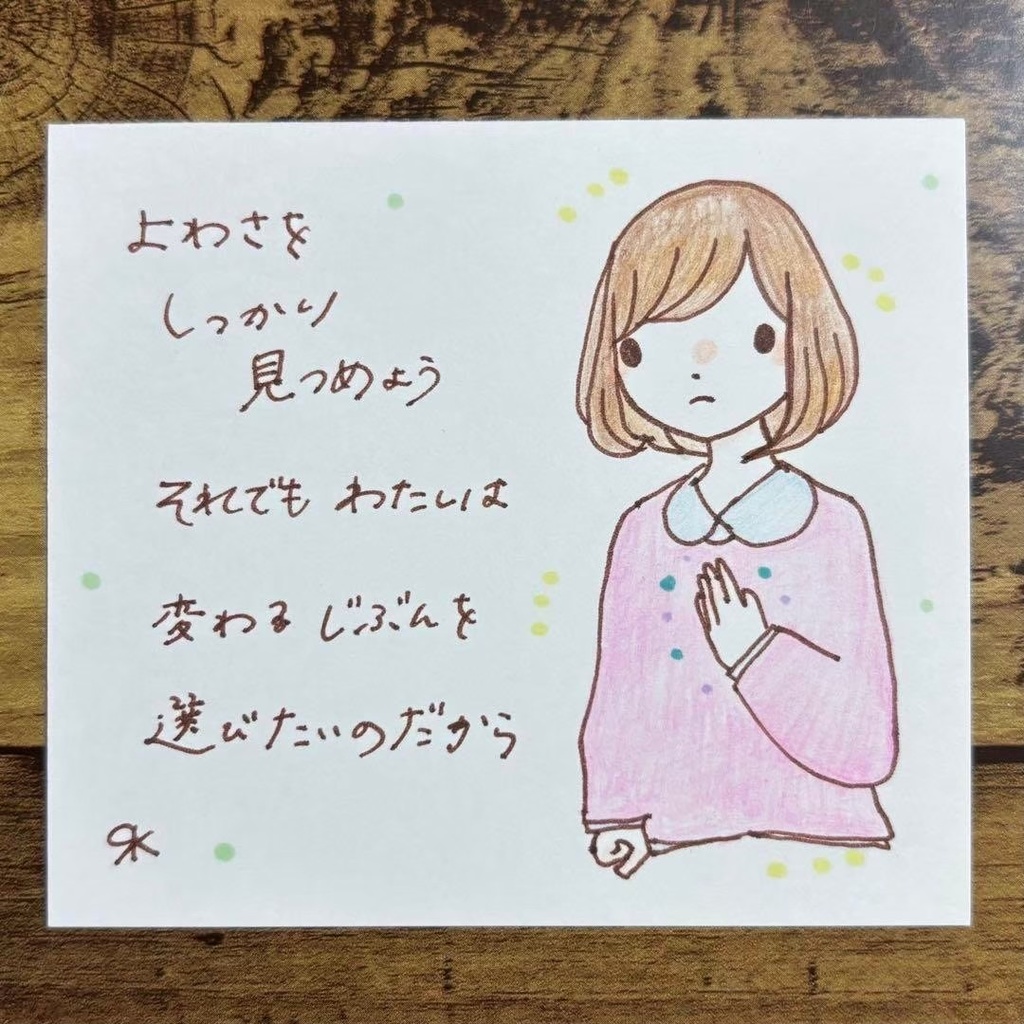 よわさを
しっかり
見つめよう
それでも わたしは
変わる じぶんを
選びたいのだから